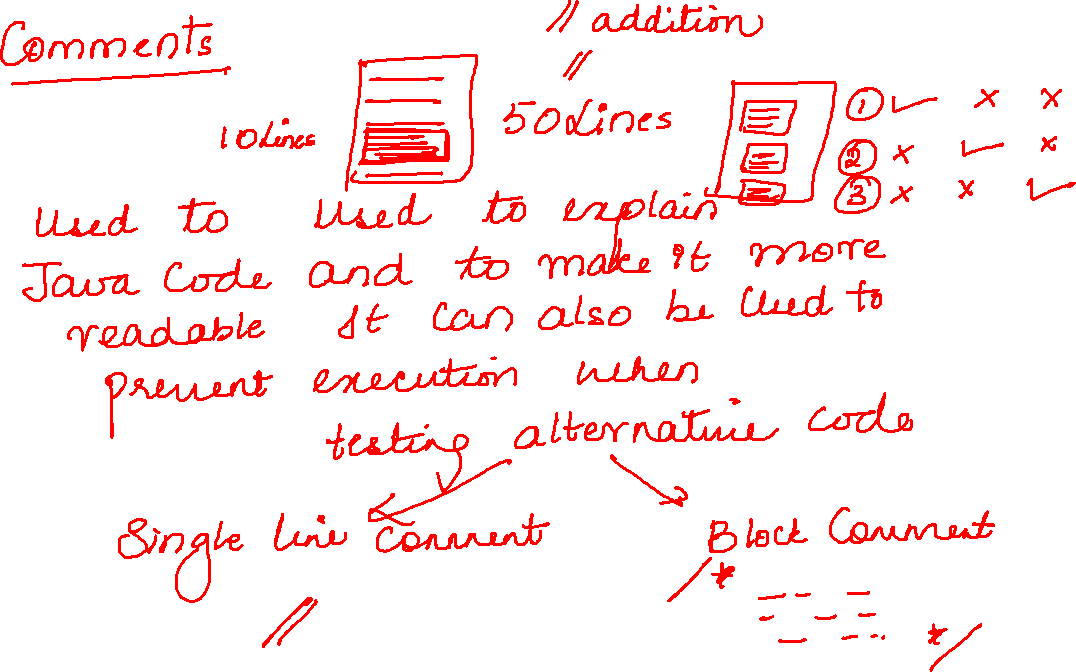 // addition
Comments
//
10 Lines
50 Lines
① ✓ × ×
② × ✓ ×
③ × × ✓
Used to Used to explain
Java Code and to make it more
readable It can also be Used to
prevent execution when
testing alternative code
Single line Comment
Block Comment
//
/*
*/